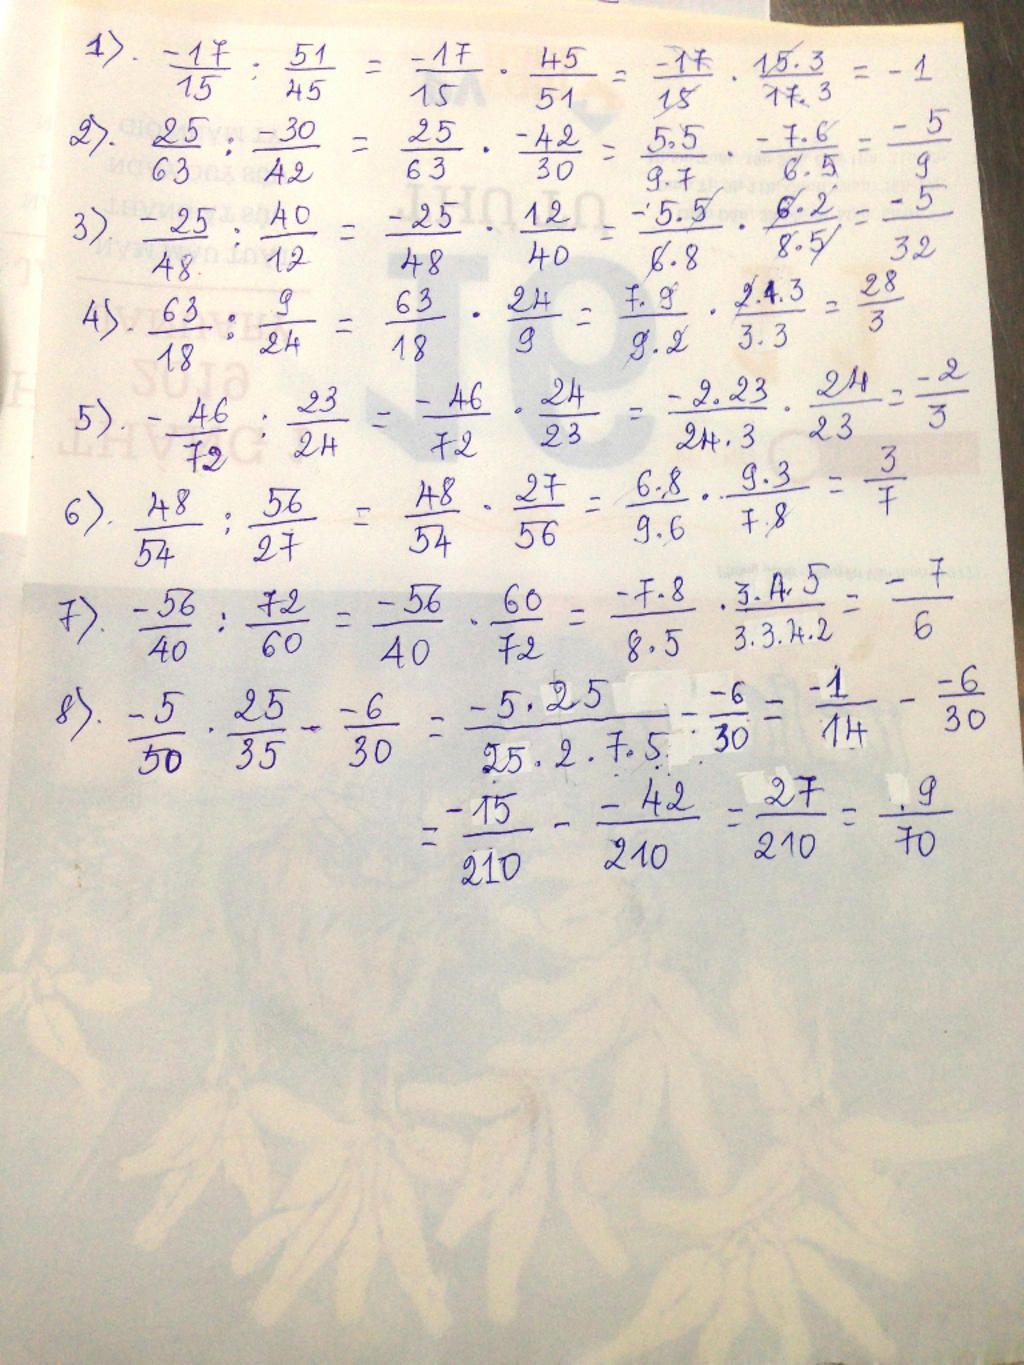 1). -17/15 : 51/45 = -17/15 . 45/51 = -17/15 . 15.3/17.3 = -1
2). 25/63 : -30/42 = 25/63 . -42/30 = 5.5/9.7 . -7.6/6.5 = -5/9
3) -25/48 : 40/12 = -25/48 . 12/40 = -5.5/6.8 . 6.2/8.5 = -5/32
4). 63/18 : 9/24 = 63/18 . 24/9 = 7.9/9.2 . 2.4.3/3.3 = 28/3
5). -46/72 : 23/24 = -46/72 . 24/23 = -2.23/24.3 . 24/23 = -2/3
6). 48/54 : 56/27 = 48/54 . 27/56 = 6.8/9.6 . 9.3/7.8 = 3/7
7). -56/40 : 72/60 = -56/40 . 60/72 = -7.8/8.5 . 3.4.5/3.3.4.2 = -7/6
8). -5/50 . 25/35 - -6/30 = -5.25/25.2.7.5 - -6/30 = -1/14 - -6/30
= -15/210 - -42/210 = 27/210 = 9/70